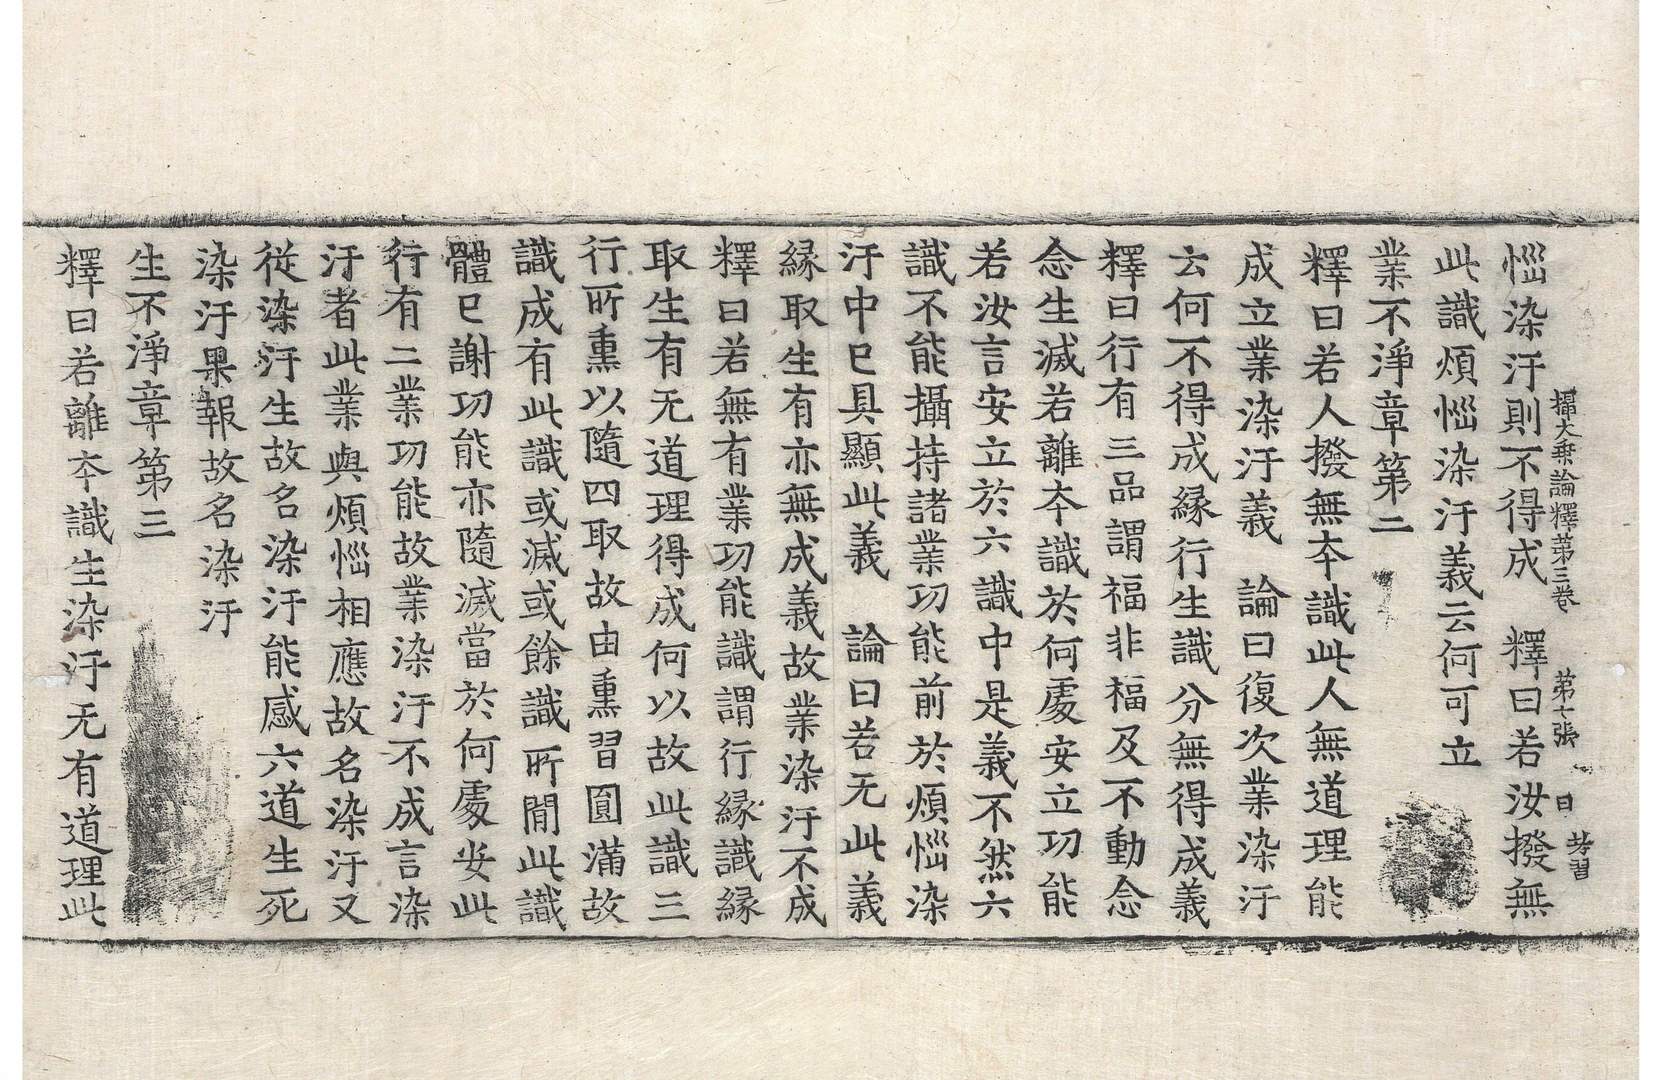 攝大乘論釋第三卷　第七張　日　
惱染汙則不得成　釋曰若汝撥無
此識煩惱染汙義云何可立
業不淨章第二
釋曰若人撥無夲識此人無道理能
成立業染汙義　論曰復次業染汙
云何不得成縁行生識分無得成義
釋曰行有三品謂福非福及不動念
念生滅若離夲識於何處安立功能
若汝言安立於六識中是義不然六
識不能攝持諸業功能前於煩惱染
汙中已具顯此義　論曰若无此義
縁取生有亦無成義故業染汙不成
釋曰若無有業功能識謂行縁識縁
取生有无道理得成何以故此識三
行所熏以隨四取故由熏習圓滿故
識成有此識或滅或餘識所閒此識
體已謝功能亦隨滅當於何處安此
行有二業功能故業染汙不成言染
汙者此業與煩惱相應故名染汙又
從染汙生故名染汙能感六道生死
染汙果報故名染汙
生不淨章第三
釋曰若離夲識生染汙无有道理此